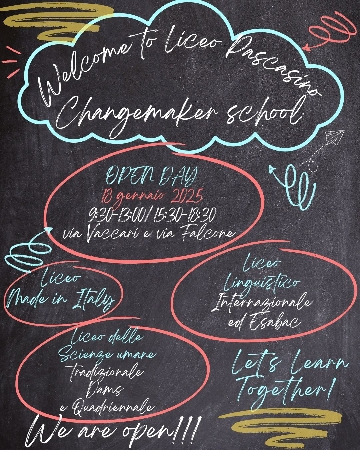 Welcome to Liceo Pascasino
Changemaker school
OPEN DAY
18 gennaio 2025
9:30-13:00/ 15:30-18:30
via Vaccari e via Falcone
Liceo
Made in Italy
Liceo
Linguistico
Internazionale
ed Esabac
Liceo delle
Scienze umane
Tradizionale
Dams
e Quadriennale
Let's Learn
Together!
We are open!!!